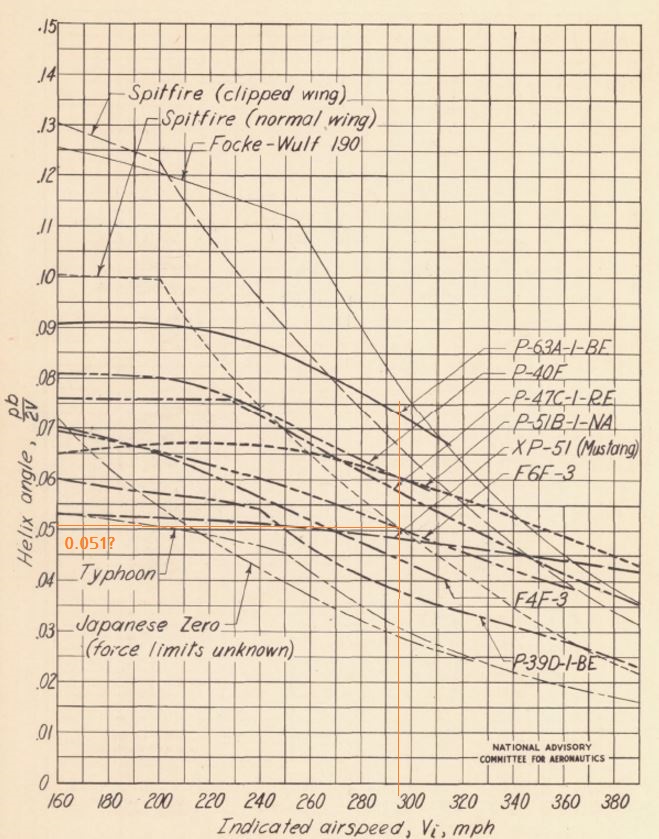 .15
.14
Spitfire (clipped wing)
Spitfire (normal wing)
.13
Focke-Wulf 190
.12
.11
.10
.09
P-63A-1-BE
P-40F
.08
P-47C-1-RE
P-51B-1-NA
.07
XP-51 (Mustang)
F6F-3
.06
Helix angle, pb/2V
.05
0.051?
Typhoon
.04
F4F-3
Japanese Zero
(force limits unknown)
.03
P-39D-1-BE
.02
NATIONAL ADVISORY
COMMITTEE FOR AERONAUTICS
.01
0
160 180 200 220 240 260 280 300 320 340 360 380
Indicated airspeed, Vi, mph